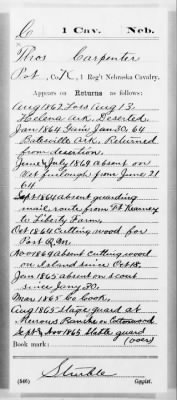 C 1 Cav. Neb.
Thos Carpenter
Pvt, Co. K, 1 Reg't Nebraska Cavalry.
Appears on Returns as follows:
Aug 1862 Loss Aug 13.
Helena Ark. Deserted
Jan 1864 Gain Jan 30, 64
Batesville Ark. Returned
from desertion.
June & July 1864 absent on
Vet furlough from June 21
64
Sept 1864 absent guarding
mail route from Ft Kearney
to Liberty Farm.
Oct 1864 Cutting wood for
Post
Nov 1864 absent cutting wood
on Island since Oct 18.
Jan 1865 absent on scout
since Jany 30.
Mar 1865 Co Cook.
Aug 1865 Stage guard at
Ranche on Cottonwood
Sept & Nov 1865 Stable guard
(over)
Book mark:
(546) Copyist.